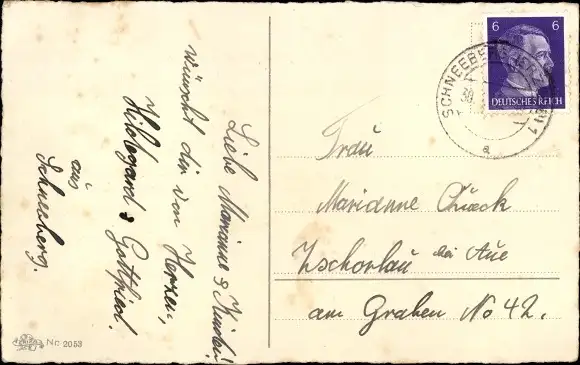 Liebe Marianne & Kinder!
wünscht dir von Herzen,
Hildegard & Gottfried.
aus
Schneeberg.
Nr. 2053
6 6
DEUTSCHES REICH
SCHNEEBERG
a
Frau
Marianne
Zschorlau bei Aue
am Graben No 42.